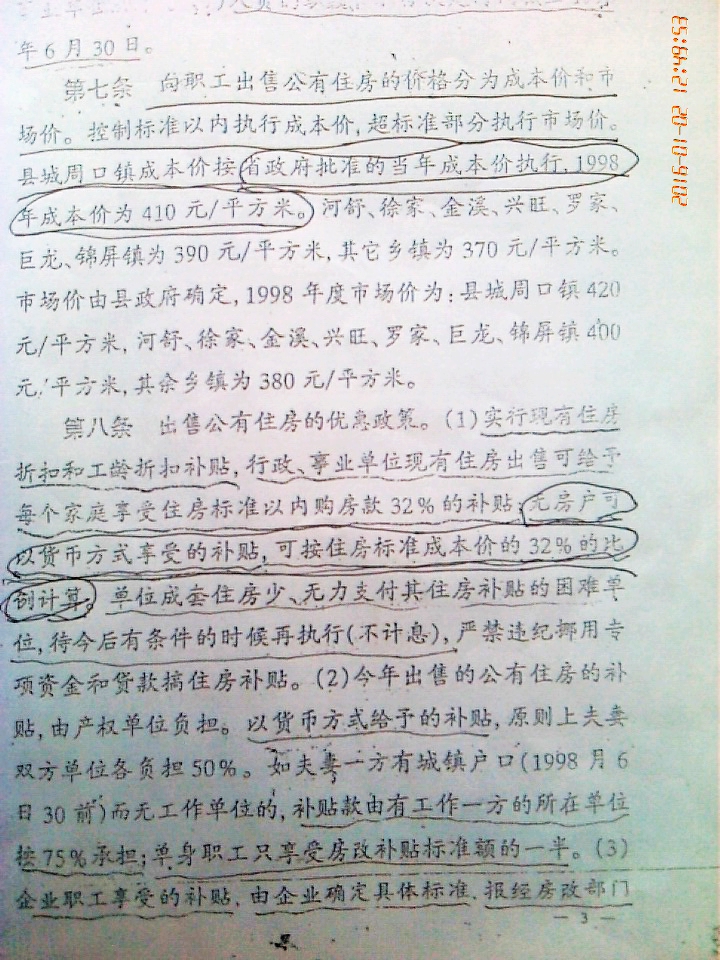 年6月30日。
第七条 向职工出售公有住房的价格分为成本价和市
场价。控制标准以内执行成本价,超标准部分执行市场价。
县城周口镇成本价按省政府批准的当年成本价执行,1998
年成本价为410元/平方米。河舒、徐家、金溪、兴旺、罗家、
巨龙、锦屏镇为390元/平方米,其它乡镇为370元/平方米。
市场价由县政府确定,1998年度市场价为:县城周口镇420
元/平方米,河舒、徐家、金溪、兴旺、罗家、巨龙、锦屏镇400
元/平方米,其余乡镇为380元/平方米。
第八条 出售公有住房的优惠政策。(1)实行现有住房
折扣和工龄折扣补贴,行政、事业单位现有住房出售可给予
每个家庭享受住房标准以内购房款32%的补贴;无房户可
以货币方式享受的补贴,可按住房标准成本价的32%的比
例计算。单位成套住房少、无力支付其住房补贴的困难单
位,待今后有条件的时候再执行(不计息),严禁违纪挪用专
项资金和贷款搞住房补贴。(2)今年出售的公有住房的补
贴,由产权单位负担。以货币方式给予的补贴,原则上夫妻
双方单位各负担50%。如夫妻一方有城镇户口(1998月6
日30前)而无工作单位的,补贴款由有工作一方的所在单位
按75%承担;单身职工只享受房改补贴标准额的一半。(3)
企业职工享受的补贴,由企业确定具体标准,报经房改部门
— 3 —
2016-10-20 12:48:53